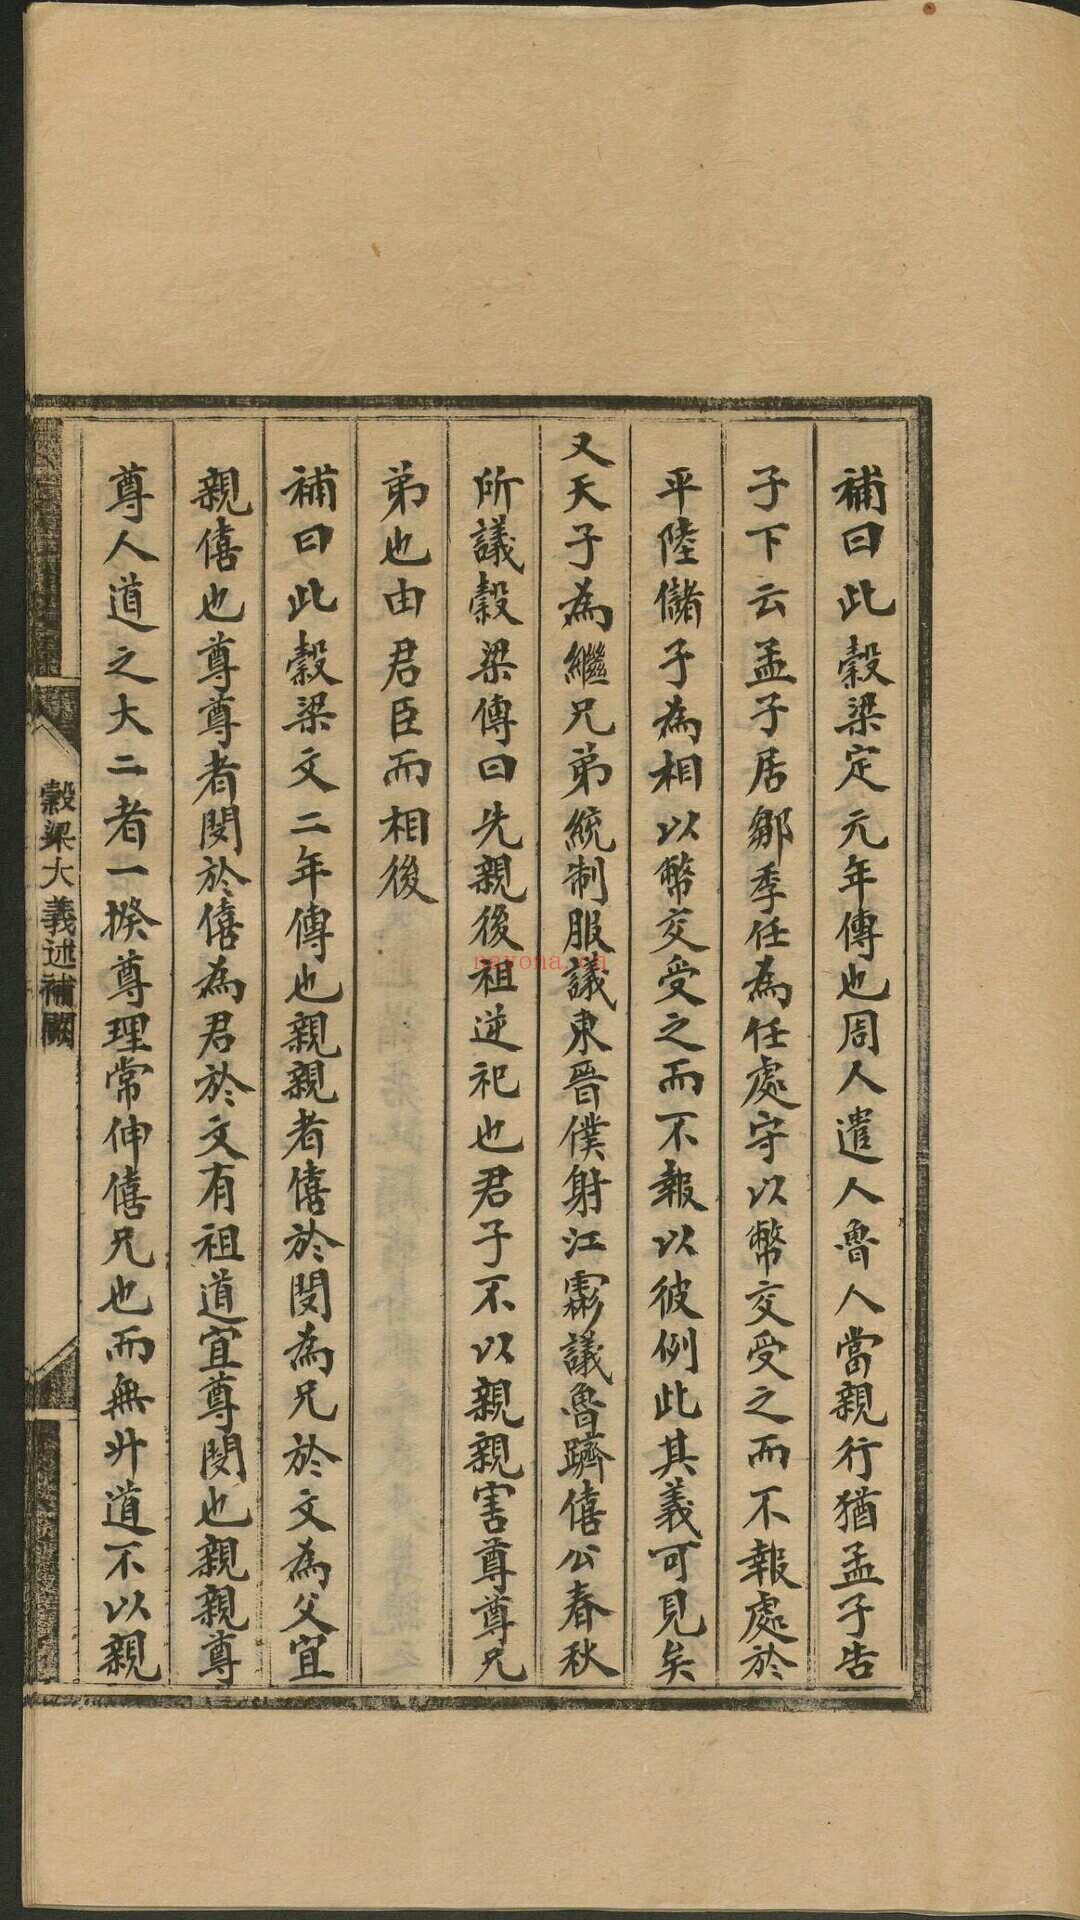 補曰此穀梁定元年傳也周人遣人魯人當親行猶孟子告
子下云孟子居鄒季任為任處守以幣交受之而不報處於
平陸儲子為相以幣交受之而不報以彼例此其義可見矣
又天子為繼兄弟統制服議東晉僕射江霦議魯躋僖公春秋
所議穀梁傳曰先親後祖逆祀也君子不以親親害尊尊兄
弟也由君臣而相後
補曰此穀梁文二年傳也親親者僖於閔為兄於文為父宜
親僖也尊尊者閔於僖為君於文有祖道宜尊閔也親親尊
尊人道之大二者一揆尊理常伸僖兄也而無廾道不以親
穀梁大義述補闕
nayona.cn